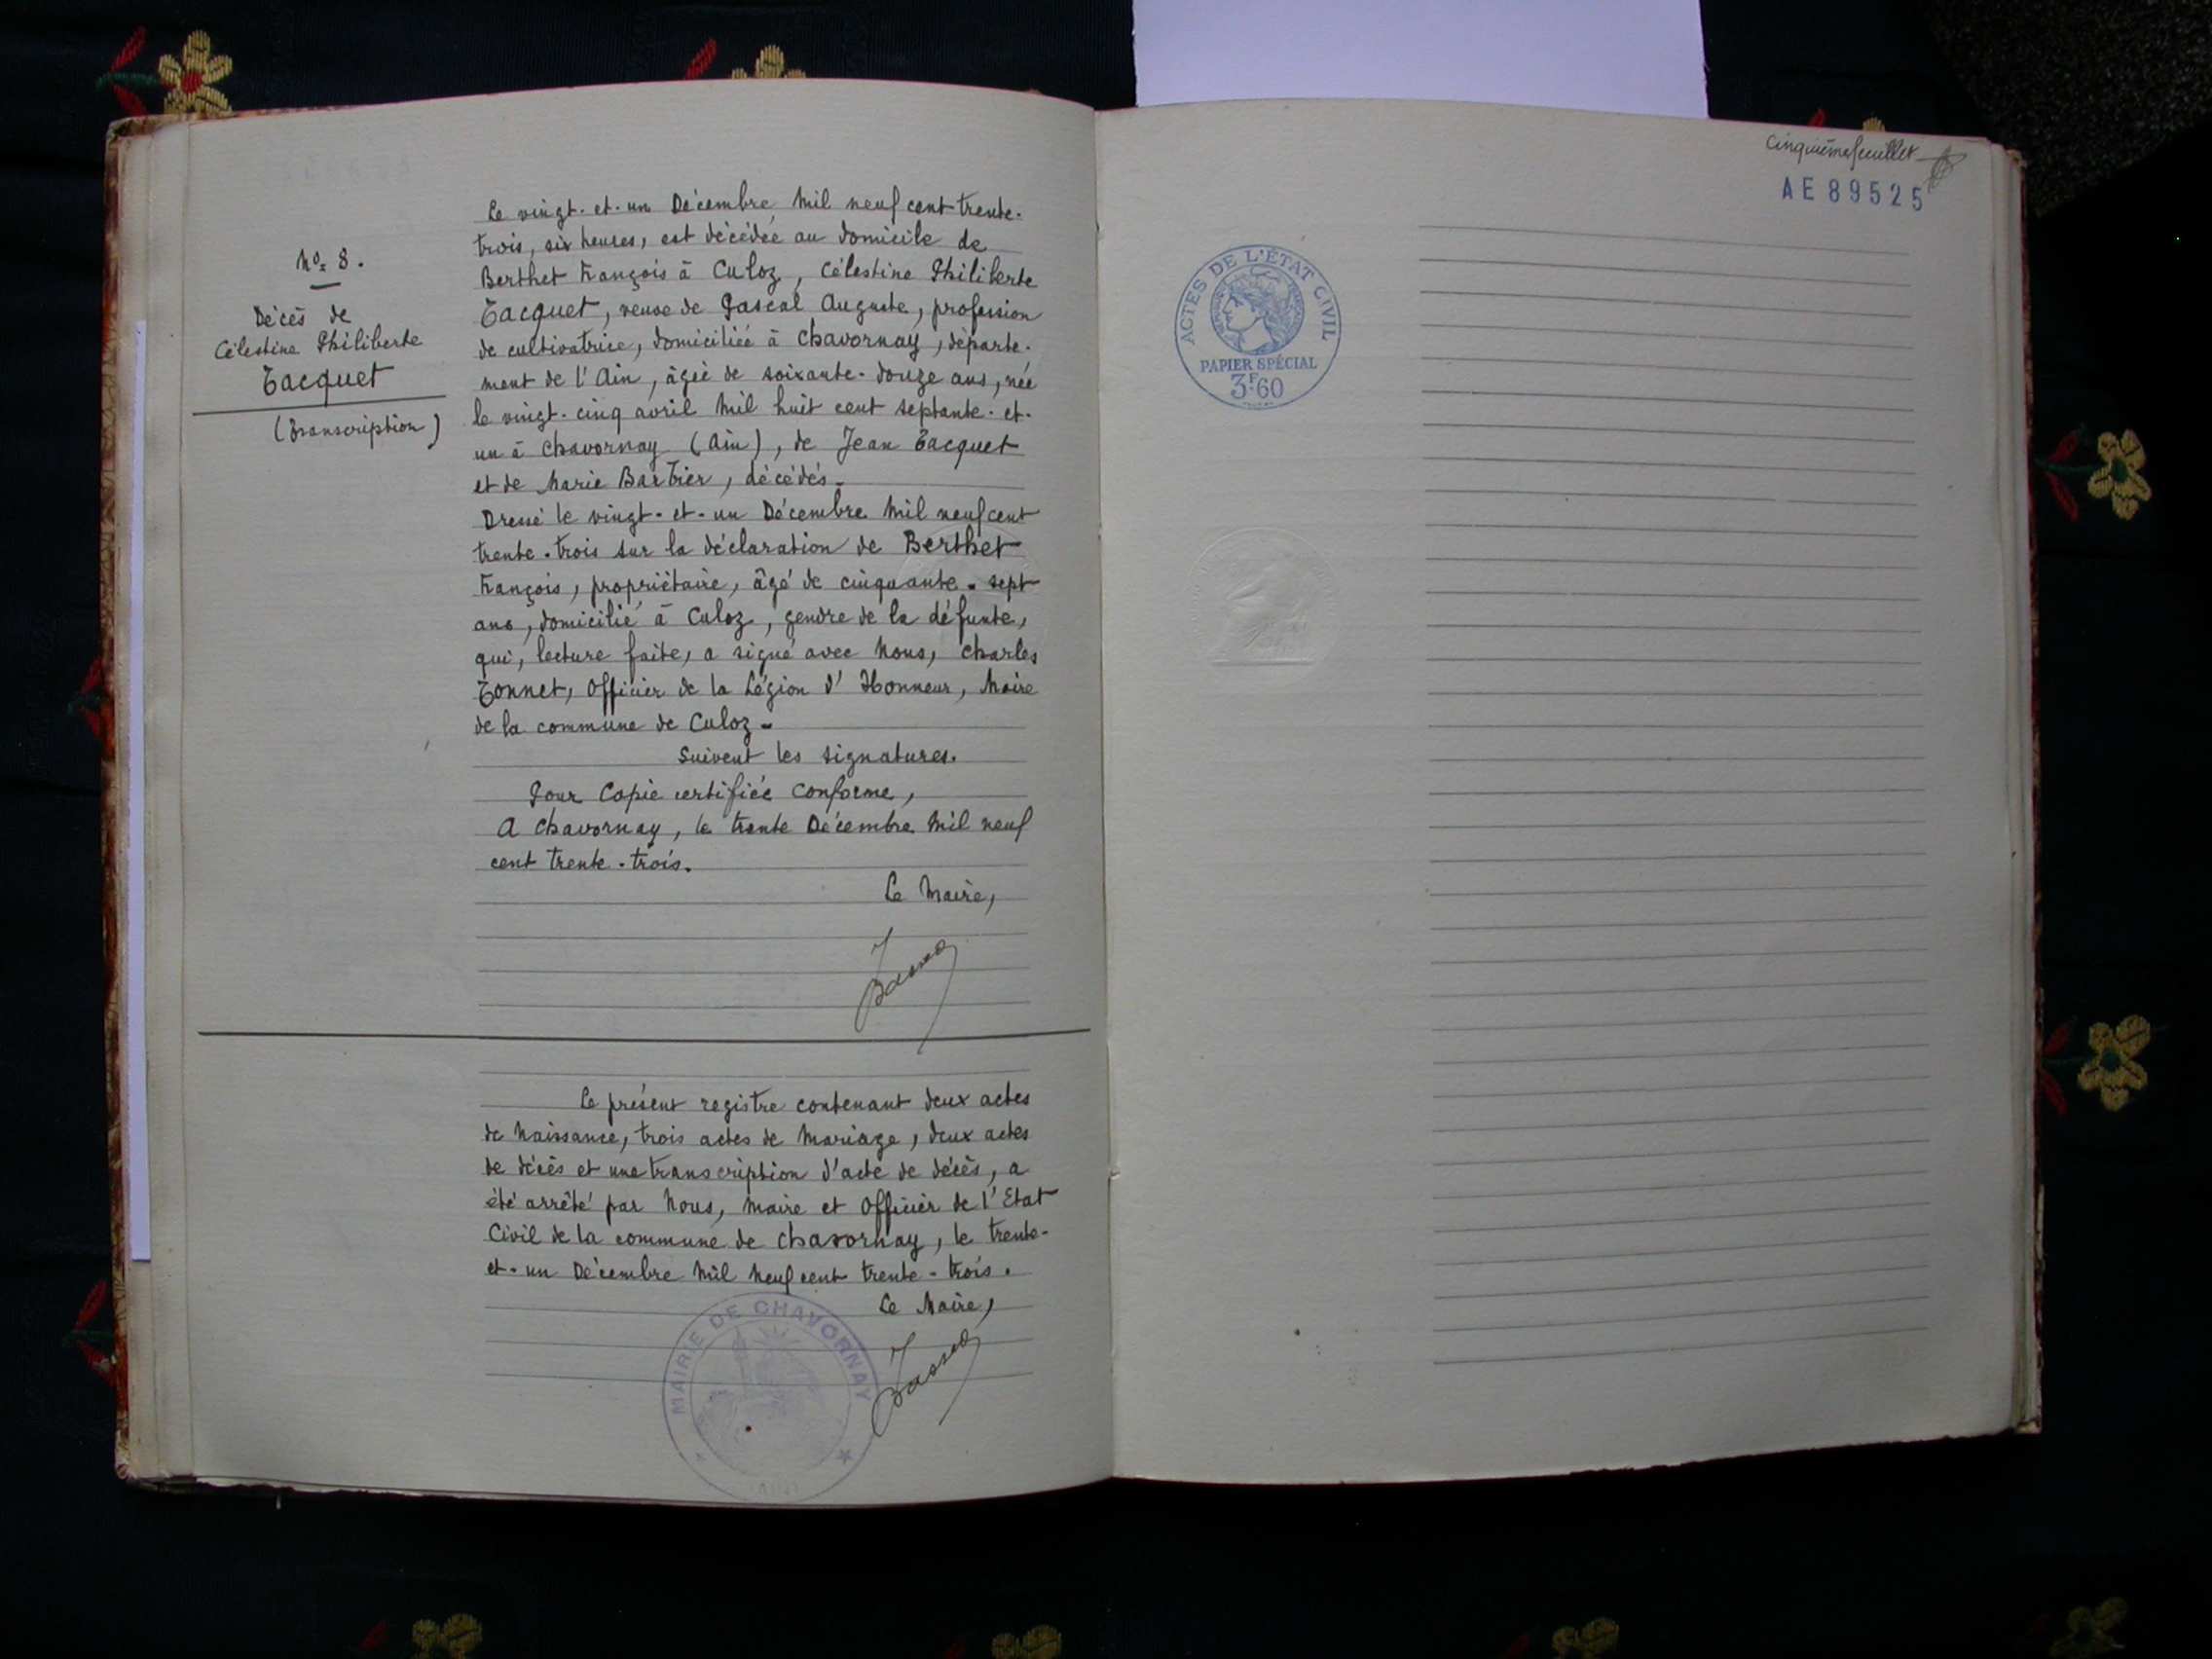 N° 8.
Décès de
Célestine Philiberte
Tacquet
(Transcription)
Le vingt-et-un Décembre Mil neuf cent trente-
trois, six heures, est décédée au domicile de
Berthet François à Culoz, Célestine Philiberte
Tacquet, veuve de Pascal Auguste, profession
de cultivatrice, domiciliée à Chavornay, départe-
ment de l'Ain, âgée de soixante-douze ans, née
le vingt-cinq avril Mil huit cent septante-et-
un à Chavornay (Ain), de Jean Tacquet
et de Marie Barbier, décédés.
Dressé le vingt-et-un Décembre Mil neuf cent
trente-trois sur la déclaration de Berthet
François, propriétaire, âgé de cinquante-sept
ans, domicilié à Culoz, gendre de la défunte,
qui, lecture faite, a signé avec Nous, Charles
Tonnet, Officier de la Légion d'Honneur, Maire
de la commune de Culoz.
Suivent les signatures.
Pour Copie certifiée conforme,
A Chavornay, le trente Décembre Mil neuf
cent trente-trois.
Le Maire,
Le présent registre contenant deux actes
de Naissance, trois actes de Mariage, deux actes
de décès et une transcription d'acte de décès, a
été arrêté par Nous, Maire et Officier de l'Etat
Civil de la commune de Chavornay, le trente-
et-un Décembre Mil neuf cent trente-trois.
Le Maire,
MAIRIE DE CHAVORNAY
(AIN)
Cinquième feuillet
AE 89525
ACTES DE L'ÉTAT CIVIL
PAPIER SPÉCIAL
3F60